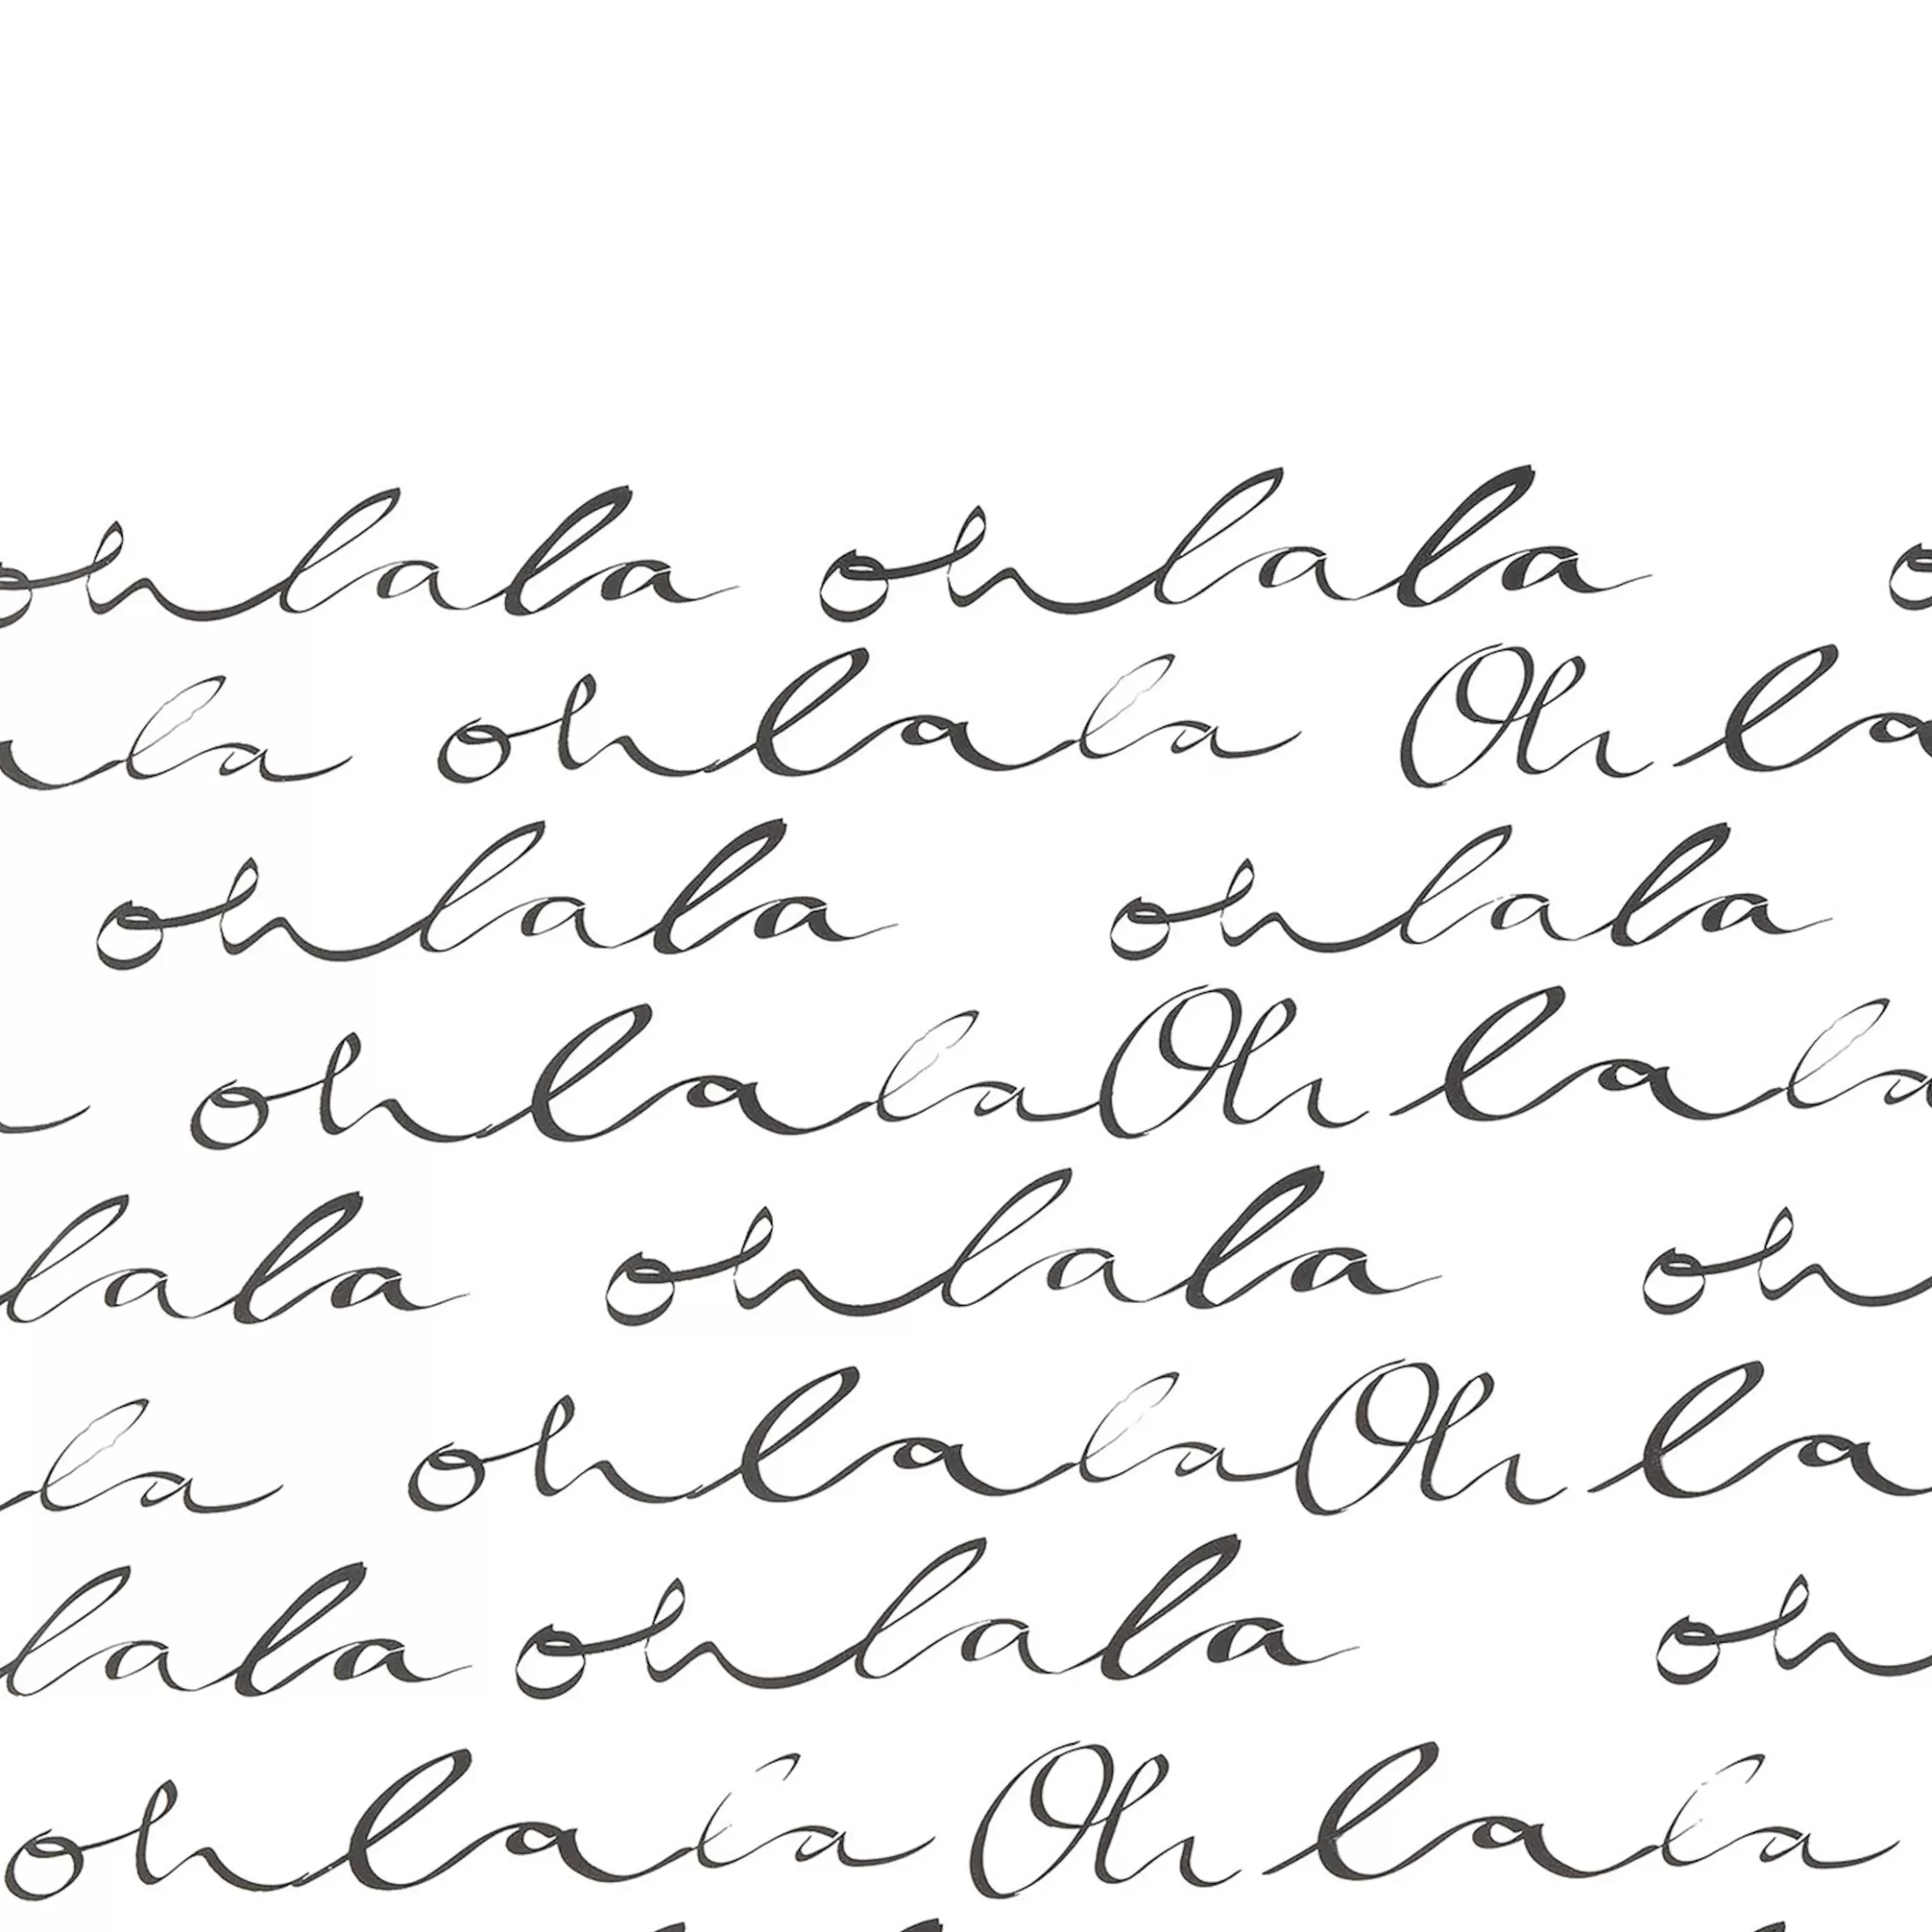 oh la la oh la la o
la oh la la Oh la
oh la la oh la la
oh la la Oh la la
la la oh la la oh
la oh la la Oh la
la la oh la la oh
oh la la Oh la la